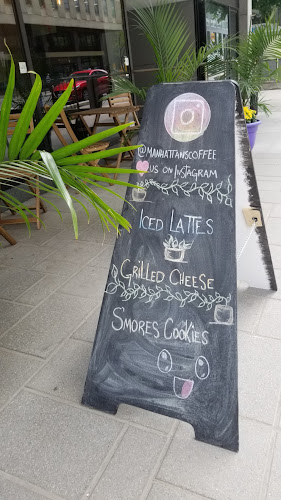 @MANHATTANSCOFFEE
US ON INSTAGRAM
ICED LATTES
GRILLED CHEESE
SMORES COOKIES